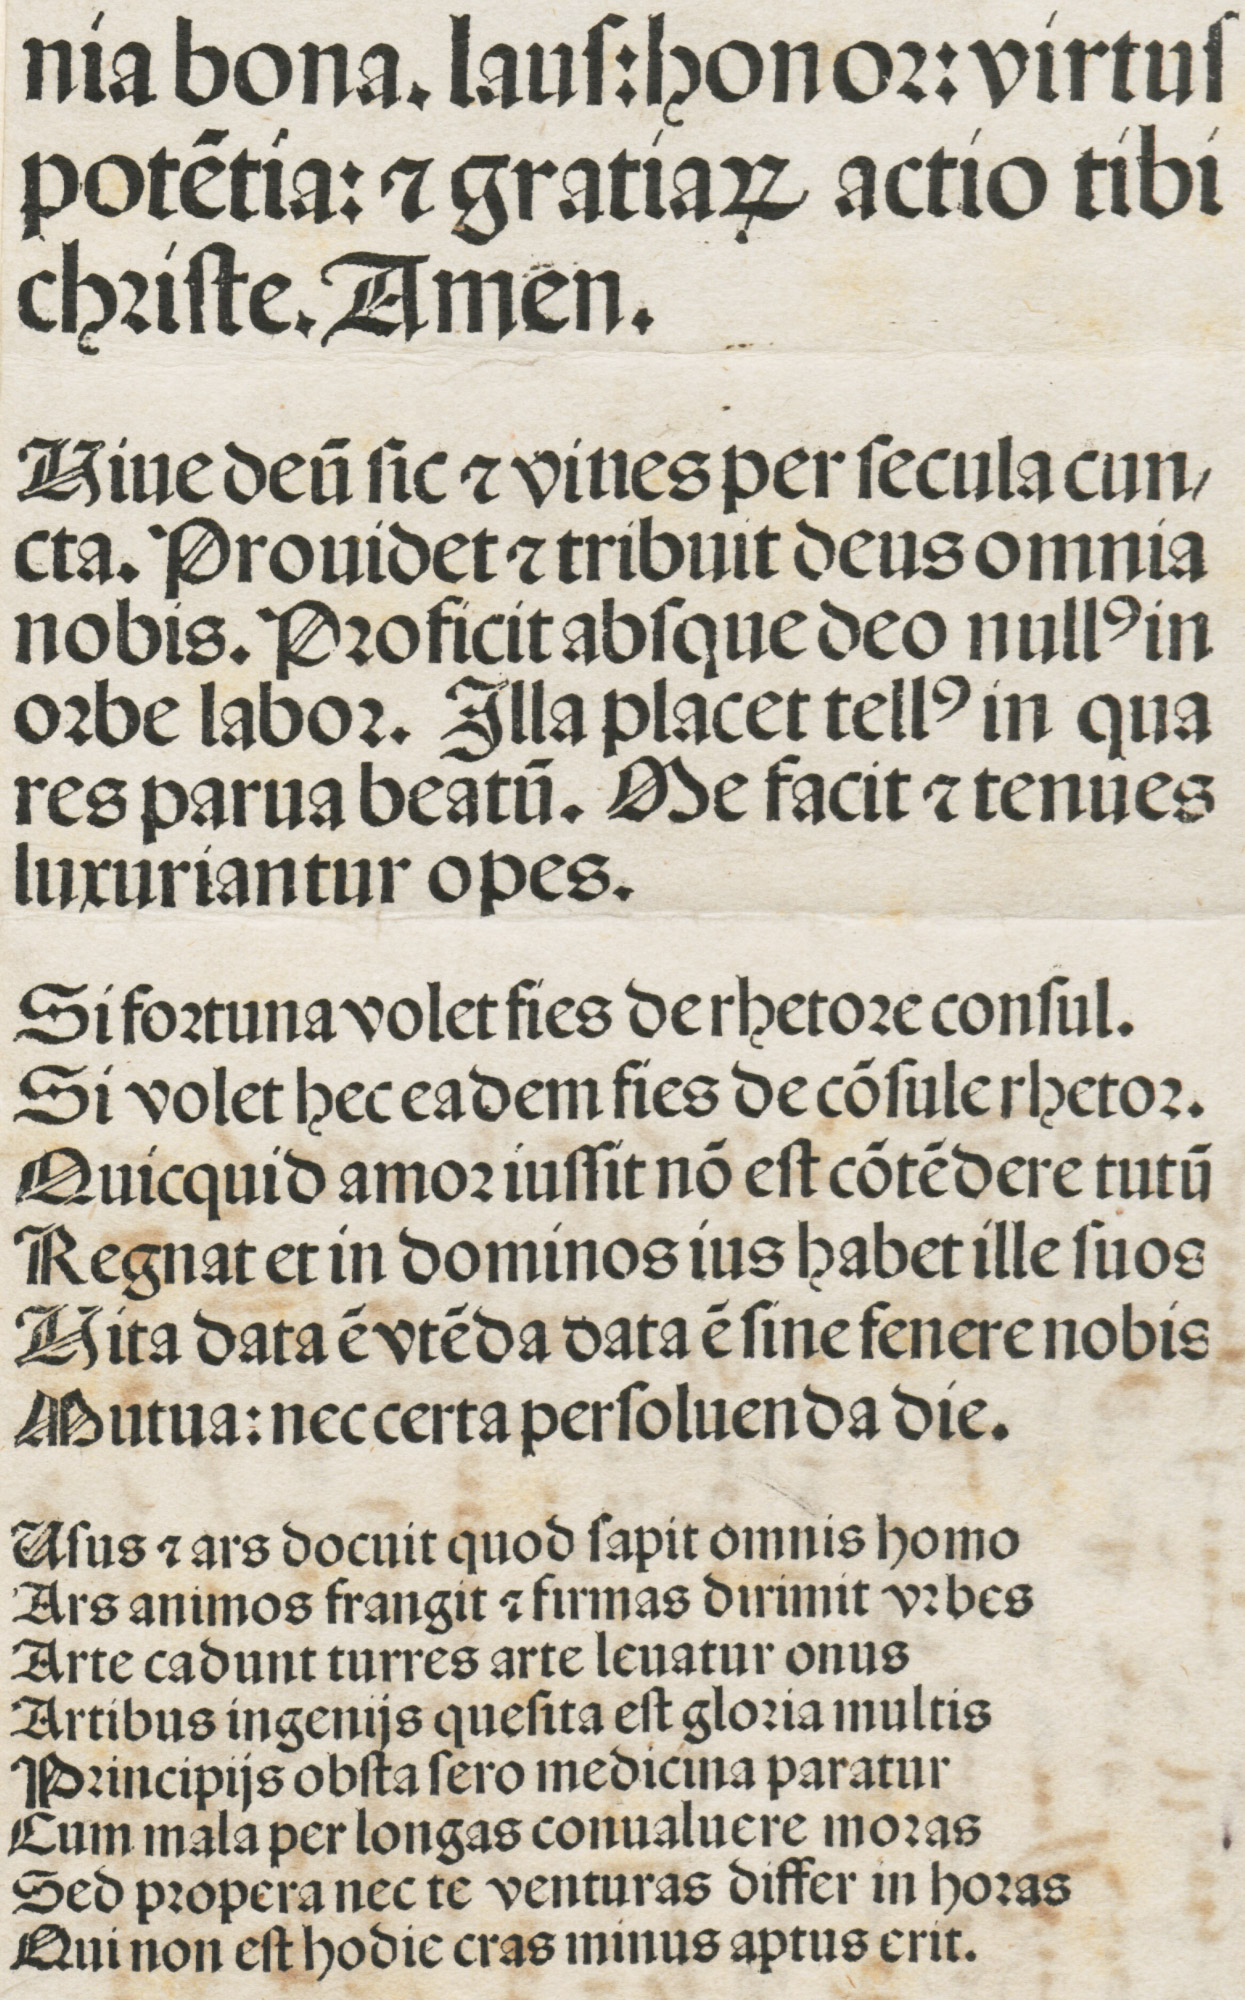 nia bona. lauſ:honoꝛ:virtuſ
potētia: ⁊ gratiaꝝ actio tibi
chꝛiſte. Amen.
Uiue deū ſic ⁊ viues per ſecula cun⸗
cta. Prouidet ⁊ tribuit deus omnia
nobis. Pꝛoficit abſque deo nullꝰ in
oꝛbe laboꝛ. Illa placet tellꝰ in qua
res parua beatū. Me facit ⁊ tenues
luxuriantur opes.
Si foꝛtuna volet fies de rhetoꝛe conſul.
Si volet hec eadem fies de cōſule rhetoꝛ.
Quicquid amoꝛ iuſſit nō eſt cōtēdere tutū
Regnat et in dominos ius habet ille ſuos
Uita data ē vtēda data ē ſine fenere nobis
Mutua: nec certa perſoluenda die.
Uſus ⁊ ars docuit quod ſapit omnis homo
Ars animos frangit ⁊ firmas dirimit vꝛbes
Arte cadunt turres arte leuatur onus
Artibus ingenijs queſita eſt gloꝛia multis
Pꝛincipijs obſta ſero medicina paratur
Cum mala per longas conualuere moꝛas
Sed pꝛopera nec te venturas differ in hoꝛas
Qui non eſt hodie cras minus aptus erit.